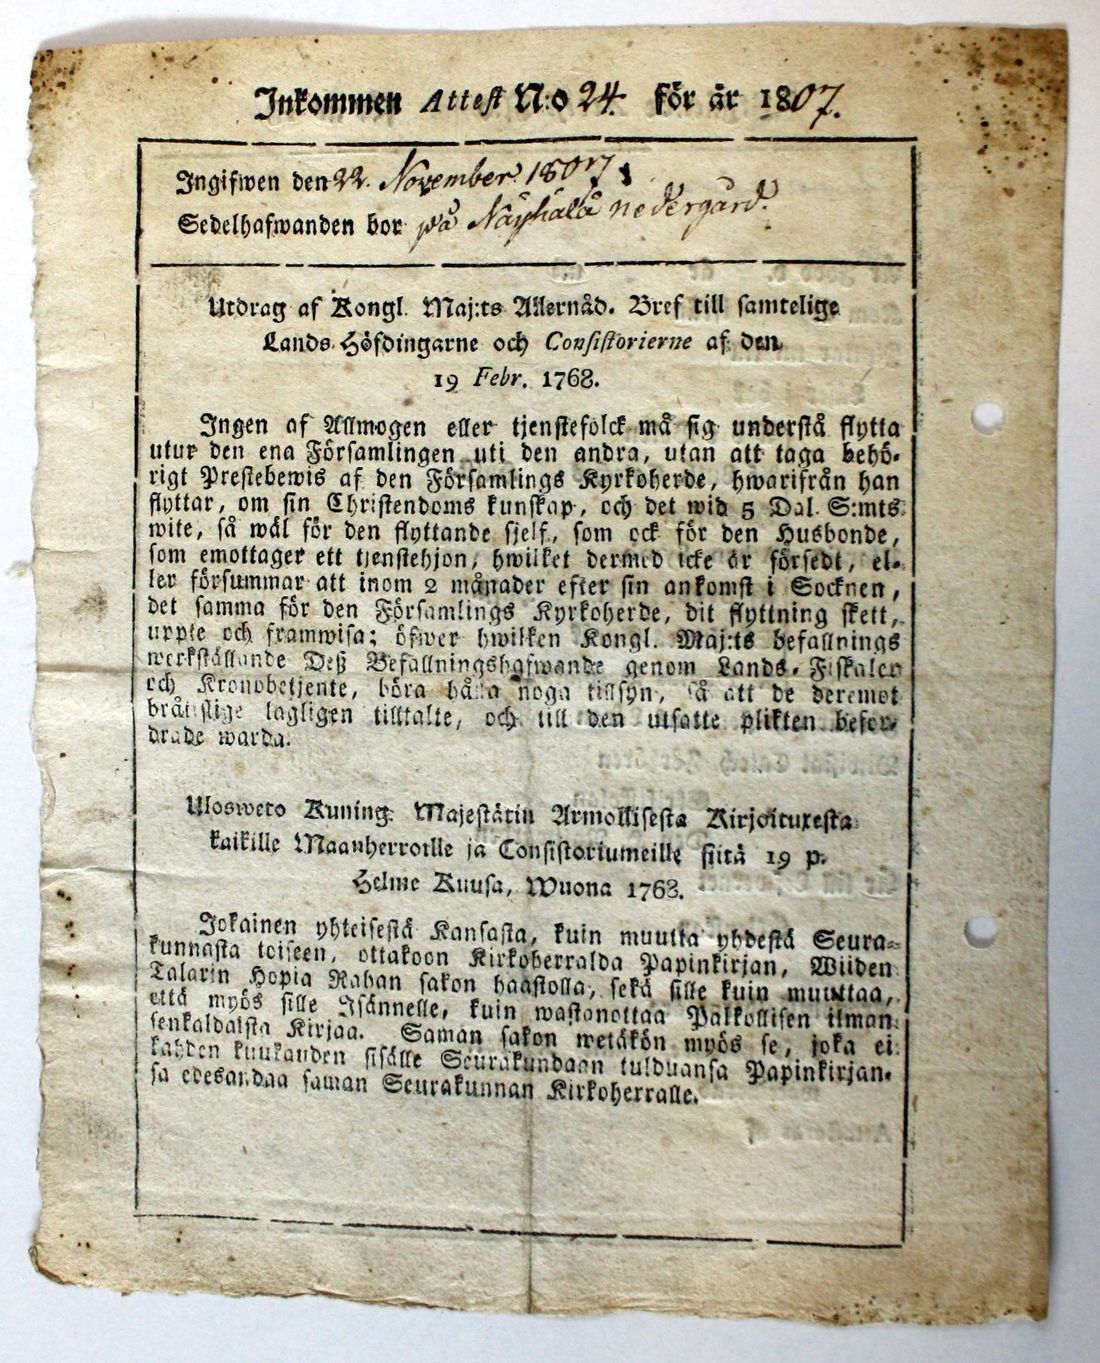 Inkommen Attest N:o 24. för år 1807.
Ingifwen den 22. November 1807
Sedelhafwanden bor på nedergård.
Utdrag af Kongl. Maj:ts Allernåd. Bref till samtelige
Lands-Höfdingarne och Consistorierne af den
19 Febr. 1768.
Ingen af Allmogen eller tjenstefolck må sig understå flytta
utur den ena Församlingen uti den andra, utan att taga behö-
rigt Prestebewis af den Församlings Kyrkoherde, hwarifrån han
flyttar, om sin Christendoms kunskap, och det wid 5 Dal. S:mts
wite, så wäl för den flyttande sjelf, som ock för den Husbonde,
som emottager ett tjenstehjon, hwilket dermed icke är försedt, el-
ler försummar att inom 2 månader efter sin ankomst i Socknen,
det samma för den Församlings Kyrkoherde, dit flyttning skett,
uppte och framwisa; öfwer hwilken Kongl. Maj:ts befallnings
werkställande Deß Befallningshafwande genom Lands-Fiskaler
och Kronobetjente, böra hålla noga tillsyn, så att de deremot
bråttslige lagligen tilltalte, och till den utsatte plikten befor-
drade warda.
Ulosweto Kuning. Majestätin Armollisesta Kirjoituxesta
kaikille Maanherroille ja Consistoriumeille siitä 19 p.
Helme Kuusa, Wuona 1768.
Jokainen yhteisestä Kansasta, kuin muutta yhdestä Seura-
kunnasta toiseen, ottakoon Kirkoherralda Papinkirjan, Wiiden
Talarin Hopia Rahan sakon haastolla, sekä sille kuin muuttaa,
että myös sille Isännelle, kuin wastanottaa Palkollisen ilman
senkaldaista Kirjaa. Saman sakon wetäkön myös se, joka ei
kahden kuukauden sisälle Seurakundaan tulduansa Papinkirjan-
sa edesandaa saman Seurakunnan Kirkoherralle.